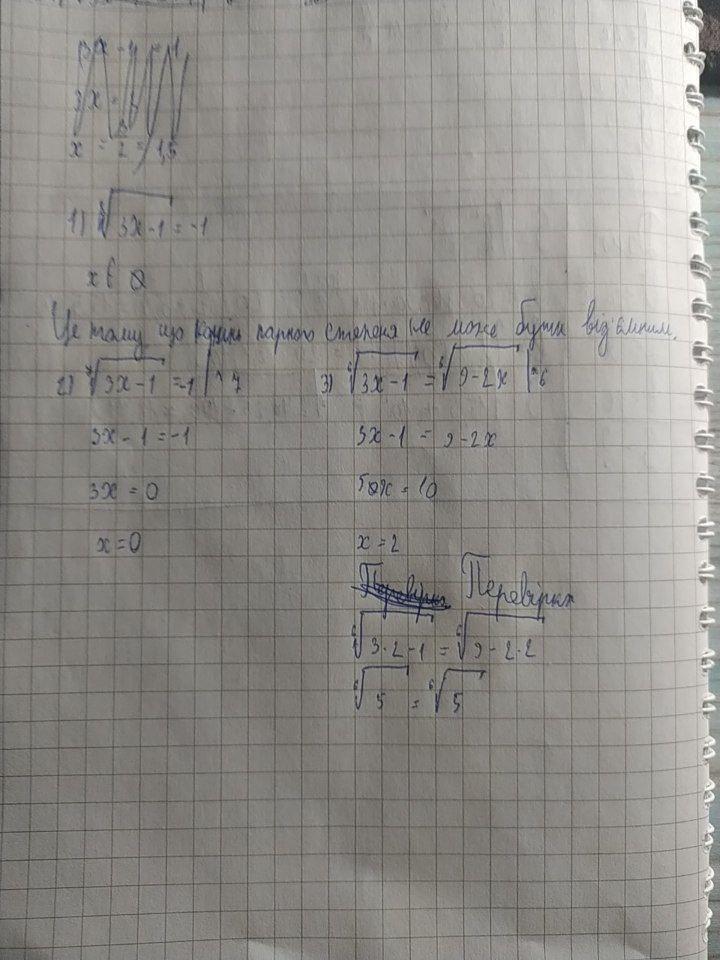 x = 3/2 = 1,5
1) ⁸√(3x-1) = -1
x ∈ ∅
Це тому що корінь парного степеня не може бути від'ємним.
2) ⁷√(3x-1) = -1 | ^7
3x - 1 = -1
3x = 0
x = 0
3) ⁶√(3x-1) = ⁶√(9-2x) | ^6
3x-1 = 9-2x
5x = 10
x = 2
Перевірка
⁶√(3·2-1) = ⁶√(9-2·2)
⁶√5 = ⁶√5